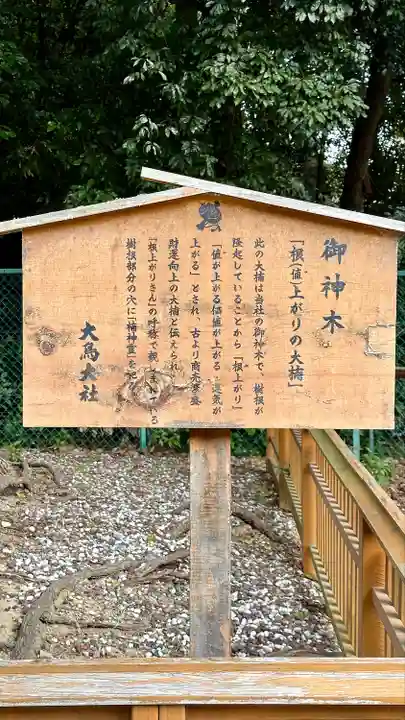 御神木
「根(値)上がりの大楠」
此の大楠は当社の御神木で、樹根が
隆起していることから「根上がり」
「値が上がる価値が上がる 運気が
上がる」とされ、古より商売繁盛
財運向上の大楠と伝えられ
「根上がりさん」の呼称で親しまれる
樹根部分の穴に「楠神霊」を祀
大鳥大社